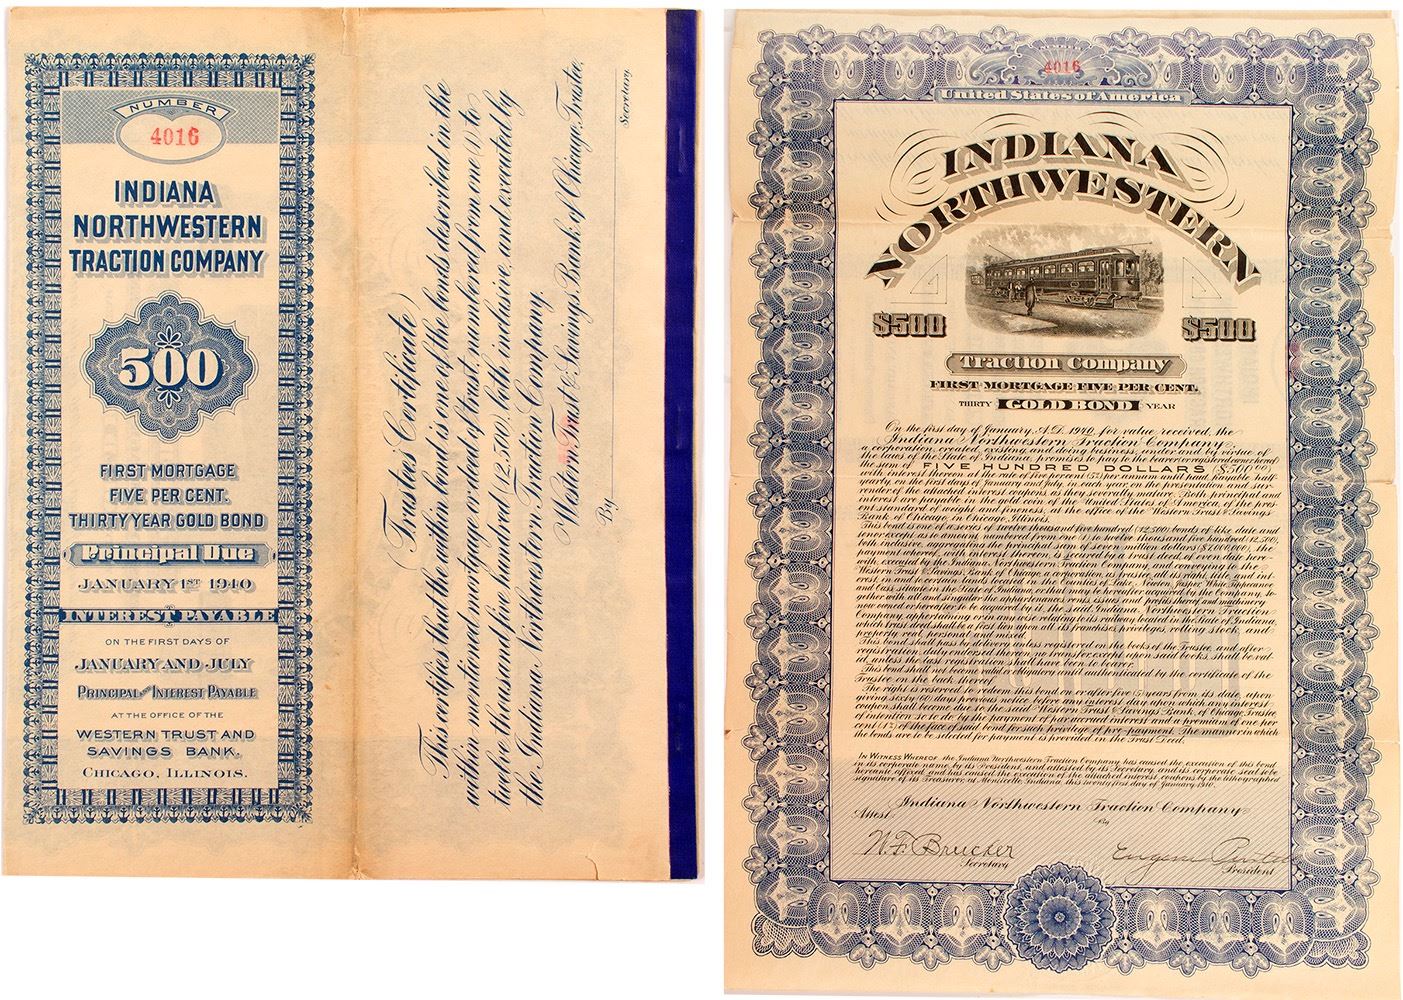 NUMBER
4016
INDIANA
NORTHWESTERN
TRACTION COMPANY
500
FIRST MORTGAGE
FIVE PER CENT.
THIRTY YEAR GOLD BOND
Principal Due
JANUARY 1ST 1940
INTEREST PAYABLE
ON THE FIRST DAYS OF
JANUARY AND JULY
PRINCIPAL AND INTEREST PAYABLE
AT THE OFFICE OF THE
WESTERN TRUST AND
SAVINGS BANK,
CHICAGO, ILLINOIS.
(Trustee's Certificate)
This certifies that the within bond is one of the bonds described in the
within mentioned mortgage or deed of trust, numbered from one (1) to
twelve thousand five hundred (12,500), both inclusive, and executed by
the Indiana Northwestern Traction Company.
Western Trust & Savings Bank of Chicago, Trustee,
By
Secretary.
4016
United States of America
INDIANA
NORTHWESTERN
$500 $500
Traction Company
FIRST MORTGAGE FIVE PER CENT.
THIRTY GOLD BOND YEAR
On the first day of January, A.D. 1940, for value received, the
Indiana Northwestern Traction Company,
a corporation, created, existing and doing business, under and by virtue of
the laws of the State of Indiana, promises to pay to the bearer (or registered owner)
the sum of FIVE HUNDRED DOLLARS ($500.00)
with interest thereon at the rate of five percent (5%) per annum until paid, payable half-
yearly, on the first days of January and July, in each year on the presentation and sur-
render of the attached interest coupons, as they severally mature. Both principal and
interest are payable in the gold coin of the United States of America, of the pres-
ent standard of weight and fineness, at the office of the Western Trust & Savings
Bank, of Chicago, in Chicago, Illinois.
This bond is one of a series of twelve thousand five hundred (12,500) bonds of like date and
tenor except as to amount, numbered from one (1) to twelve thousand five hundred (12,500),
both inclusive, aggregating the principal sum of seven million dollars ($7,000,000), the
payment whereof, with interest thereon, is secured by a trust deed, of even date here-
with, executed by the Indiana, Northwestern Traction Company, and conveying to the
Western Trust & Savings Bank, of Chicago, a corporation, as trustee, all its right, title and int-
erest, in and to certain lands located in the Counties of Lake, Porter, Jasper, White, Tippecanoe
and Cass, situate in the State of Indiana, or that may be hereafter acquired by the Company, to-
gether with all and singular the appurtenances, rents, issues and profits thereof and machinery
now owned or hereafter to be acquired by it, the said Indiana, Northwestern Traction
Company, appertaining or in anywise relating to its railway located in the State of Indiana,
which trust deed shall be a first lien upon all its franchises, privileges, rolling stock and
property, real, personal and mixed.
This bond shall pass by delivery unless registered on the books of the Trustee, and after
registration, duly endorsed thereon, no transfer except upon said books shall be val-
id, unless the last registration shall have been to bearer.
This bond shall not become valid or obligatory until authenticated by the certificate of the
Trustee on the back thereof.
The right is reserved to redeem this bond on or after five (5) years from its date, upon
giving sixty (60) days previous notice, before any interest day upon which any interest
coupon shall become due to the said Western Trust & Savings Bank, of Chicago, Trustee,
of intention so to do by the payment of par accrued interest and a premium of one per
cent (1%) of the face of said bond for such privilege of pre-payment. The manner in which
the bonds are to be selected for payment is provided in the Trust Deed.
IN WITNESS WHEREOF the Indiana Northwestern Traction Company has caused the execution of this bond
in its corporate name, by its President, and attested by its Secretary, and its corporate seal to be
hereunto affixed, and has caused the execution of the attached interest coupons by the lithographed
signature of its Treasurer, at Monticello, Indiana, this twenty first day of January 1910.
Indiana Northwestern Traction Company
Attest By
W. F. Brucker Eugene
Secretary President